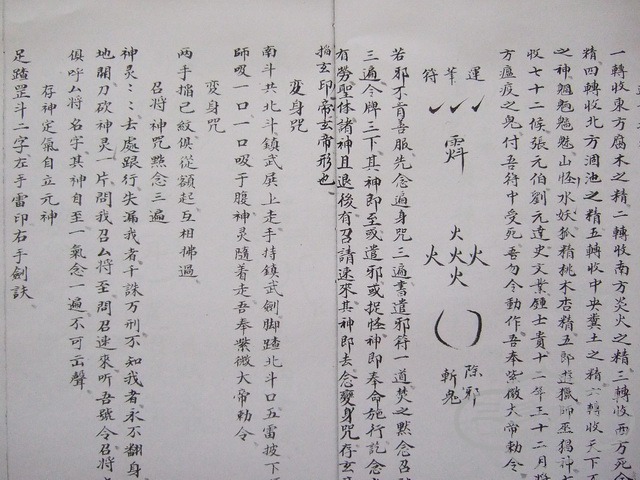 一轉收東方腐木之精二轉收南方炎火之精三轉收西方死金
精四轉收北方涸池之精五轉收中央糞土之精六轉收天下
之神魍魎魑魅山怪水妖狐精桃木杏精五郎遊獵師巫猖神
收七十二候張元伯劉元達史文業鍾士貴十二年王十二月將
方瘟疫之鬼付吾符中受死吾勿令動作吾奉紫微大帝勅令
運筆符
火火火火火
除邪
斬鬼
若邪不肯善服先念遍身咒三遍書遣邪符一道焚之黙念召
三遍令牌三下其神即至或遣邪或捉怪神即奉命施行訖念
有勞聖体諸神且退後有召請速來其神即去念變身咒存玄
指玄印帝玄帝形也
變身咒
南斗共北斗鎮武戾上走手持鎮武劍脚踏北斗口五雷披下
師吸一口一口吸于腹神灵隨着走吾奉紫微大帝勅令
變身咒
兩手搯己紋俱從額起互相拂過
召將神咒黙念三遍
神灵〻〻去處跟行失漏我者千誅万刑不知我者永不翻身
地開刀砍神灵一片問我召厶將至問召速來听吾號令召將
俱呼厶將名字其神自至一氣念一遍不可出聲
存神定氣自立元神
足踏罡斗二字左手雷印右手劍訣